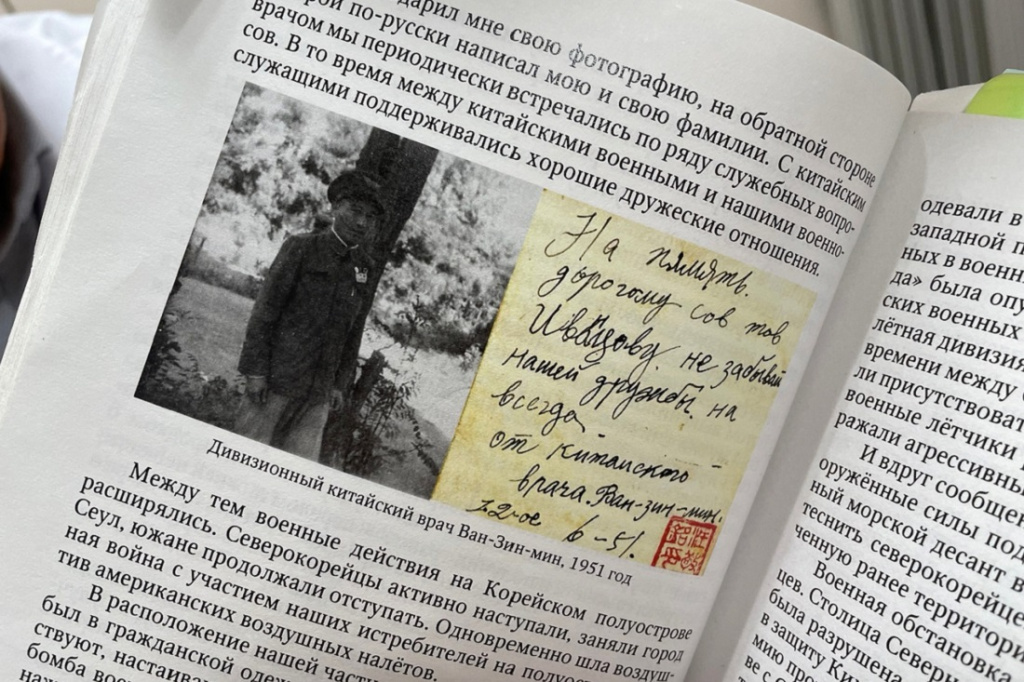 дарил мне свою фотографию, на обратной стороне
рой по-русски написал мою и свою фамилии. С китайским
врачом мы периодически встречались по ряду служебных вопро-
сов. В то время между китайскими военными и нашими военно-
служащими поддерживались хорошие дружеские отношения.
На память.
дорогому сов тов
Иванцову не забывай
нашей дружбы на
всегда
от китайского
врача. Ван-зин-мин.
6-51.
Дивизионный китайский врач Ван-Зин-мин, 1951 год
Между тем военные действия на Корейском полуострове
расширялись. Северокорейцы активно наступали, заняли город
Сеул, южане продолжали отступать. Одновременно шла воздуш-
ная война с участием наших истребителей на полуострове про-
тив американских воздушных налётов.
В расположение нашей части
был в гражданской
ствуют,
бомба
одевали в
западной
ных в военн
да» была опу
ских военных
лётная дивизия
времени между
ли присутствоват
военные лётчики
ражали агрессивны
И вдруг сообщен
оружённые силы под
ный морской десант в
теснить северокорейце
ченную ранее территори
Военная обстановка
цев. Столица Северн
была разрушена
в защиту Ки
мию про
ве с